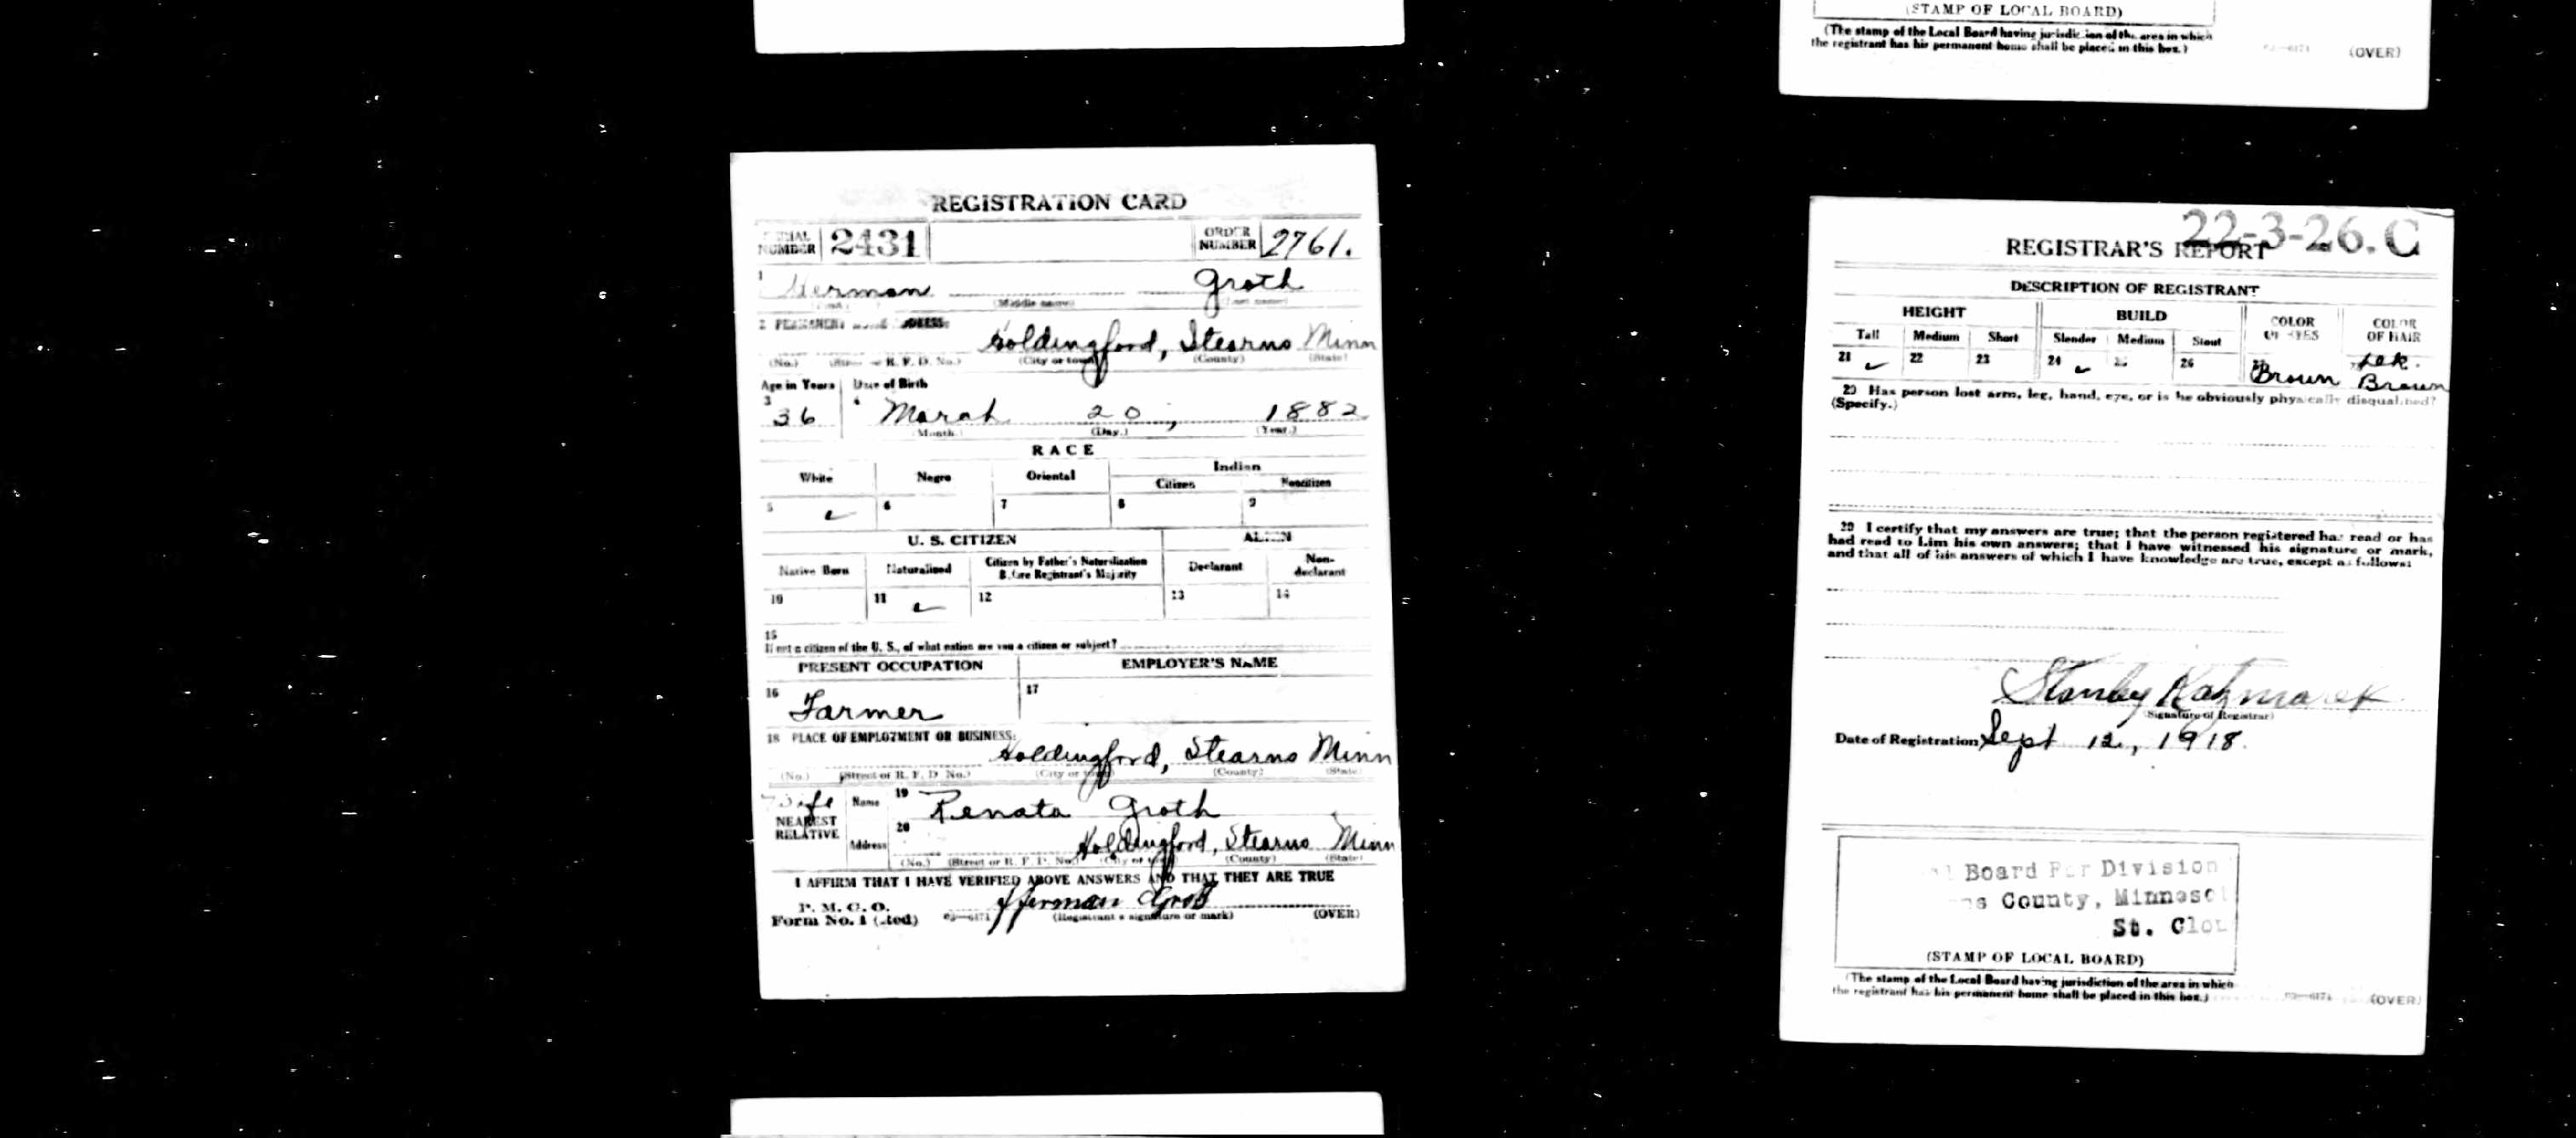 (STAMP OF LOCAL BOARD)
(The stamp of the Local Board having jurisdiction of the area in which
the registrant has his permanent home shall be placed in this box.)
(OVER)
REGISTRATION CARD
SERIAL NUMBER 2431 ORDER NUMBER 2761.
1 Herman Groth
(Middle name) (Last name)
2 PERMANENT HOME ADDRESS:
Holdingford, Stearns Minn
(No.) (Street or R. F. D. No.) (City or town) (County) (State)
Age in Years Date of Birth
3 36 4 March 20, 1882
(Month.) (Day.) (Year.)
RACE
White Negro Oriental Indian
Citizen Noncitizen
5 ✓ 6 7 8 9
U. S. CITIZEN ALIEN
Native Born Naturalized Citizen by Father's Naturalization Before Registrant's Majority Declarant Non-declarant
10 11 ✓ 12 13 14
15
If not a citizen of the U. S., of what nation are you a citizen or subject?
PRESENT OCCUPATION EMPLOYER'S NAME
16 Farmer 17
18 PLACE OF EMPLOYMENT OR BUSINESS:
Holdingford, Stearns Minn
(No.) (Street or R. F. D. No.) (City or town) (County) (State)
Wife Name 19 Renata Groth
NEAREST RELATIVE
Address 20 Holdingford, Stearns Minn
(No.) (Street or R. F. D. No.) (City or town) (County) (State)
I AFFIRM THAT I HAVE VERIFIED ABOVE ANSWERS AND THAT THEY ARE TRUE
P. M. G. O.
Form No. 1 03—6171 Herman Groth
(Registrant's signature or mark) (OVER)
22-3-26. C
REGISTRAR'S REPORT
DESCRIPTION OF REGISTRANT
HEIGHT BUILD COLOR OF EYES COLOR OF HAIR
Tall Medium Short Slender Medium Stout
21 ✓ 22 23 24 ✓ 25 26 Brown Dek. Brown
29 Has person lost arm, leg, hand, eye, or is he obviously physically disqualified?
(Specify.)
20 I certify that my answers are true; that the person registered has read or has
had read to him his own answers; that I have witnessed his signature or mark,
and that all of his answers of which I have knowledge are true, except as follows:
Stanley Kazmarek
(Signature of Registrar)
Date of Registration Sept 12, 1918.
Board For Division
County, Minnesot
St. Clou
(STAMP OF LOCAL BOARD)
(The stamp of the Local Board having jurisdiction of the area in which
the registrant has his permanent home shall be placed in this box.)
(OVER)